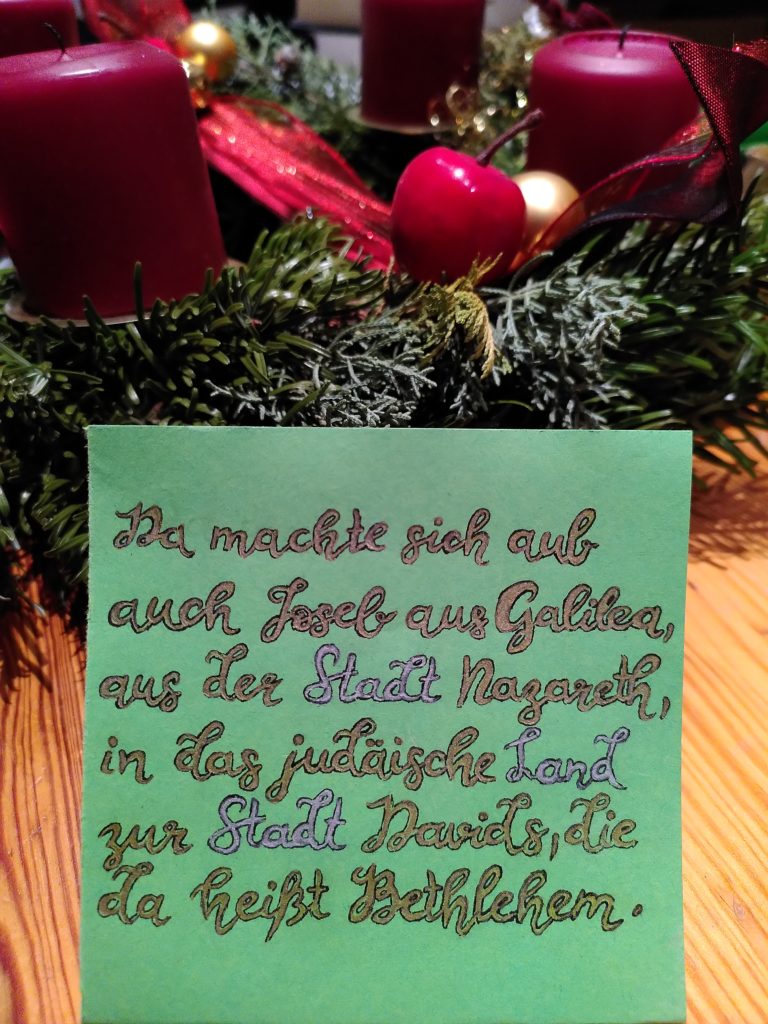 Da machte sich auf
auch Josef aus Galilea,
aus der Stadt Nazareth,
in das judäische Land
zur Stadt Davids, die
da heißt Bethlehem.